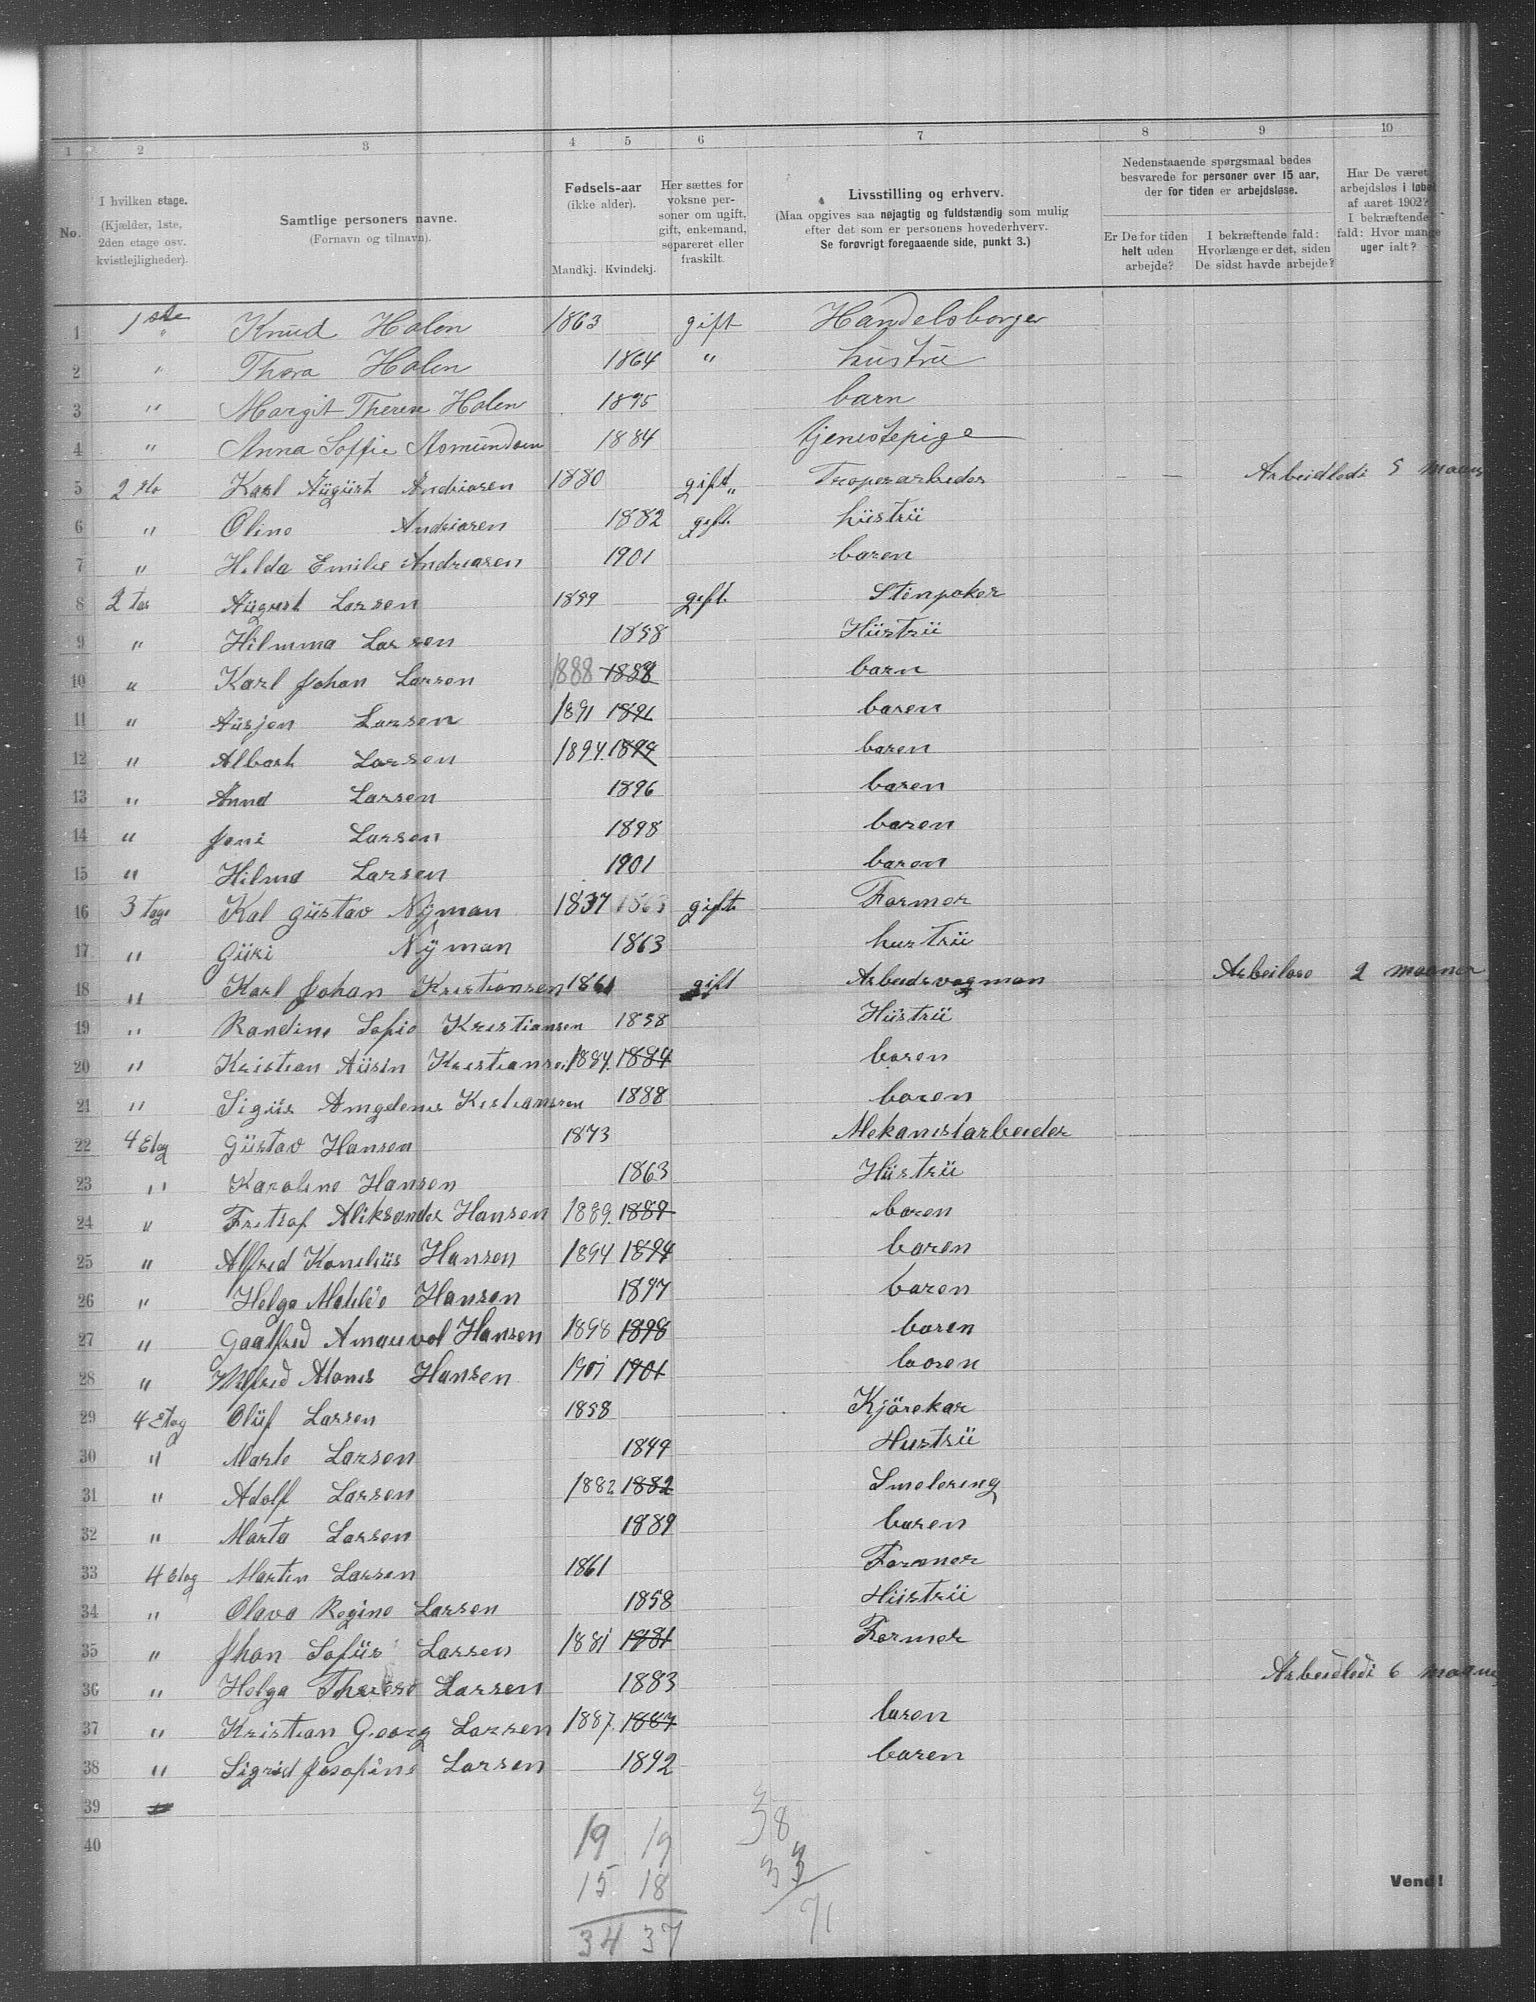 1 2 3 4 5 6 7 8 9 10
No.
I hvilken etage.
(Kjælder, 1ste, 2den etage osv. kvistlejligheder).
Samtlige personers navne.
(Fornavn og tilnavn).
Fødsels-aar
(ikke alder).
Mandkj. Kvindekj.
Her sættes for voksne personer om ugift, gift, enkemand, separeret eller fraskilt.
Livsstilling og erhverv.
(Maa opgives saa nøjagtig og fuldstændig som mulig efter det som er personens hovederhverv.
Se forøvrigt foregaaende side, punkt 3.)
Nedenstaaende spørgsmaal bedes besvarede for personer over 15 aar, der for tiden er arbejdsløse.
Er De for tiden helt uden arbejde?
I bekræftende fald: Hvorlænge er det, siden De sidst havde arbejde?
Har De været arbejdsløs i løbet af aaret 1902? I bekræftende fald: Hvor mange uger ialt?
1 1ste " Knud Holen 1863 gift Handelsborger
2 " Thora Holen 1864 " hustru
3 " Margit Therese Holen 1895 barn
4 " Anna Soffie Asmundsen 1884 tjenestepige
5 2 Karl August Andriasen 1880 gift " – – Arbeidledi 5 maaner
6 " Oline Andriasen 1882 gift hüstrü
7 " Hilda Emilie Andreasen 1901 baren
8 2 August Larsen 1859 gift Stenpoker
9 " Hilmma Larsen 1858 Hüstrü
10 " Karl Johan Larsen 1888 1888 barn
11 " Larsen 1891 1891 baren
12 " Albart Larsen 1894. 1894 baren
13 " Anna Larsen 1896 baren
14 " Larsen 1898 baren
15 " Hilma Larsen 1901 baren
16 3 tage Kal Güstav Nÿman 1837 1863 gift Farmer
17 " Güri Nÿman 1863 hustrü
18 " Karl Johan Kristiansen 1861 gift Arbeidsvogman Arbeilose 2 maaner
19 " Randine Sofie Kristiansen 1858 Hüstrü
20 " Kristian Kristiansen 1884. 1884 baren
21 " 1888 baren
22 4 Etag Güstav Hansen 1873 Mekanistarbeider
23 " Karoline Hansen 1863 Hüstrü
24 " Fritjof Aleksander Hansen 1889. 1889 baren
25 " Alfred Konelius Hansen 1894 1894 baren
26 " Helga Matilde Hansen 1897 baren
27 " Hansen 1898 1898 baren
28 " Hansen 1901 1901 baren
29 4 Etag Olüf Larsen 1858 Kjörekar
30 " Marte Larsen 1849 Hustrü
31 " Adolf Larsen 1882 1882 Smelering
32 " Marta Larsen 1889 baren
33 4 etag Martin Larsen 1861 Farmer
34 " Olava Regine Larsen 1858 Hüstrü
35 " Jhan Sofüs Larsen 1881 1881 Farmer
36 " Helga Therese Larsen 1883 Arbeidledi 6 maaner
37 " Kristian Georg Larsen 1887. 1887 baren
38 " Sigrid Josefine Larsen 1892 baren
39
40
19 19 38
15 18 33
34 37 71
Vend!